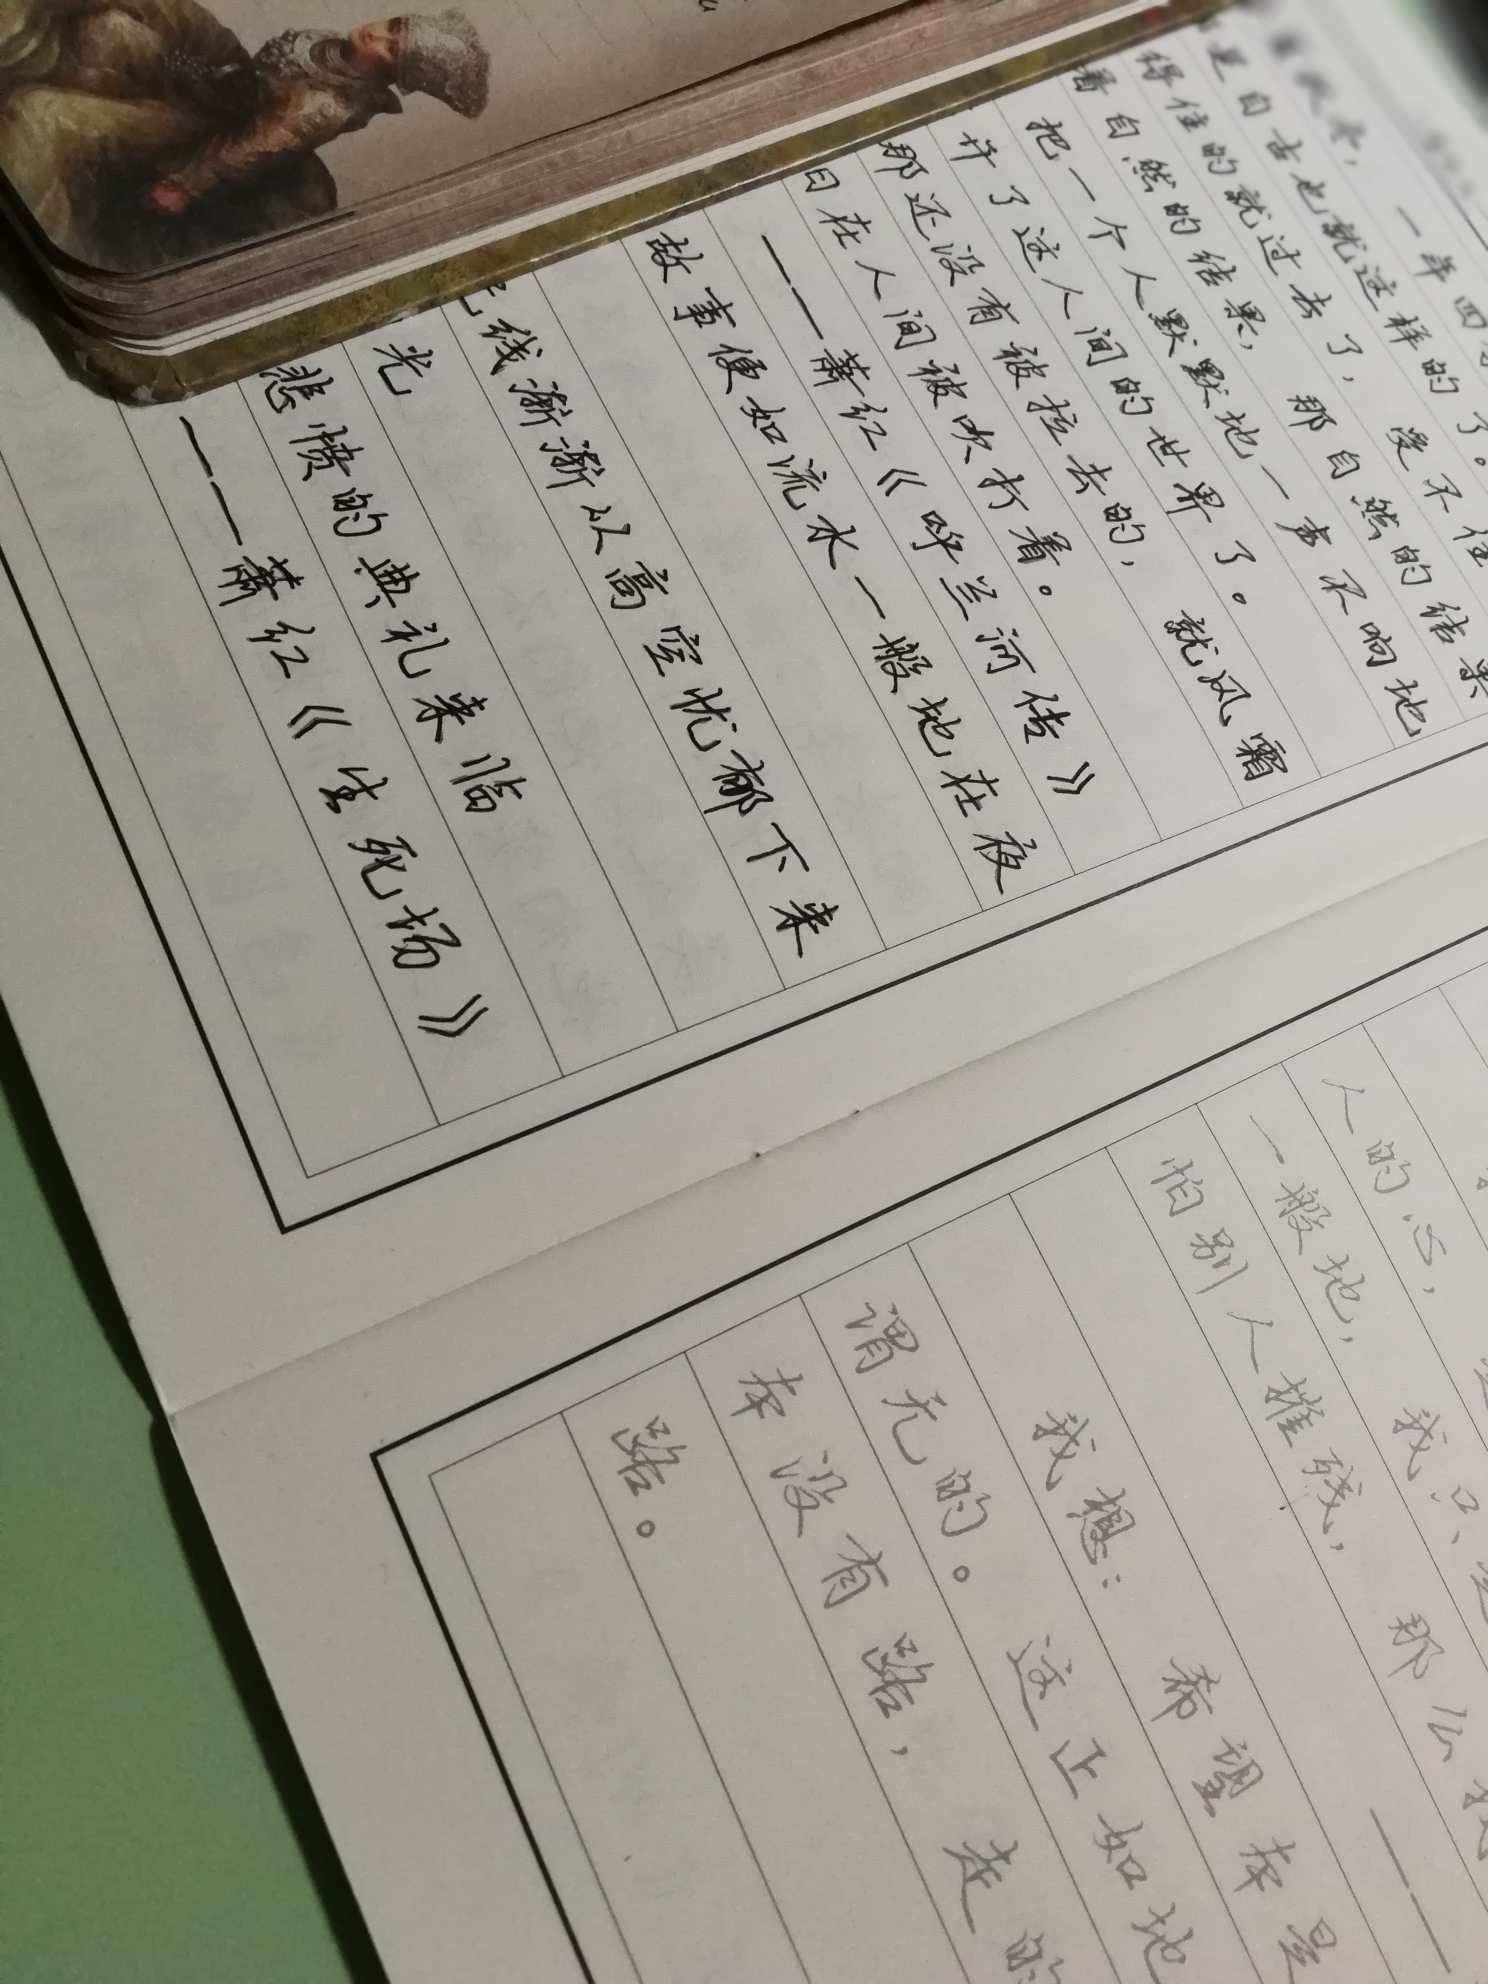 一年四
是自古也就这样的了。
得住的就过去了，受不住
着自然的结果，那自然的结果
把一个人默默地一声不响地
许了这人间的世界了。
那还没有被拉去的，就风霜
日在人间被吹打着。
——萧红《呼兰河传》
故事便如流水一般地在夜
线渐渐从高空忧郁下来
光
悲愤的典礼来临
——萧红《生死场》
人的心，
一般地，我只是
怕别人摧残，那么我
——
我想：希望本是
谓无的。这正如地
本没有路，走的
路。